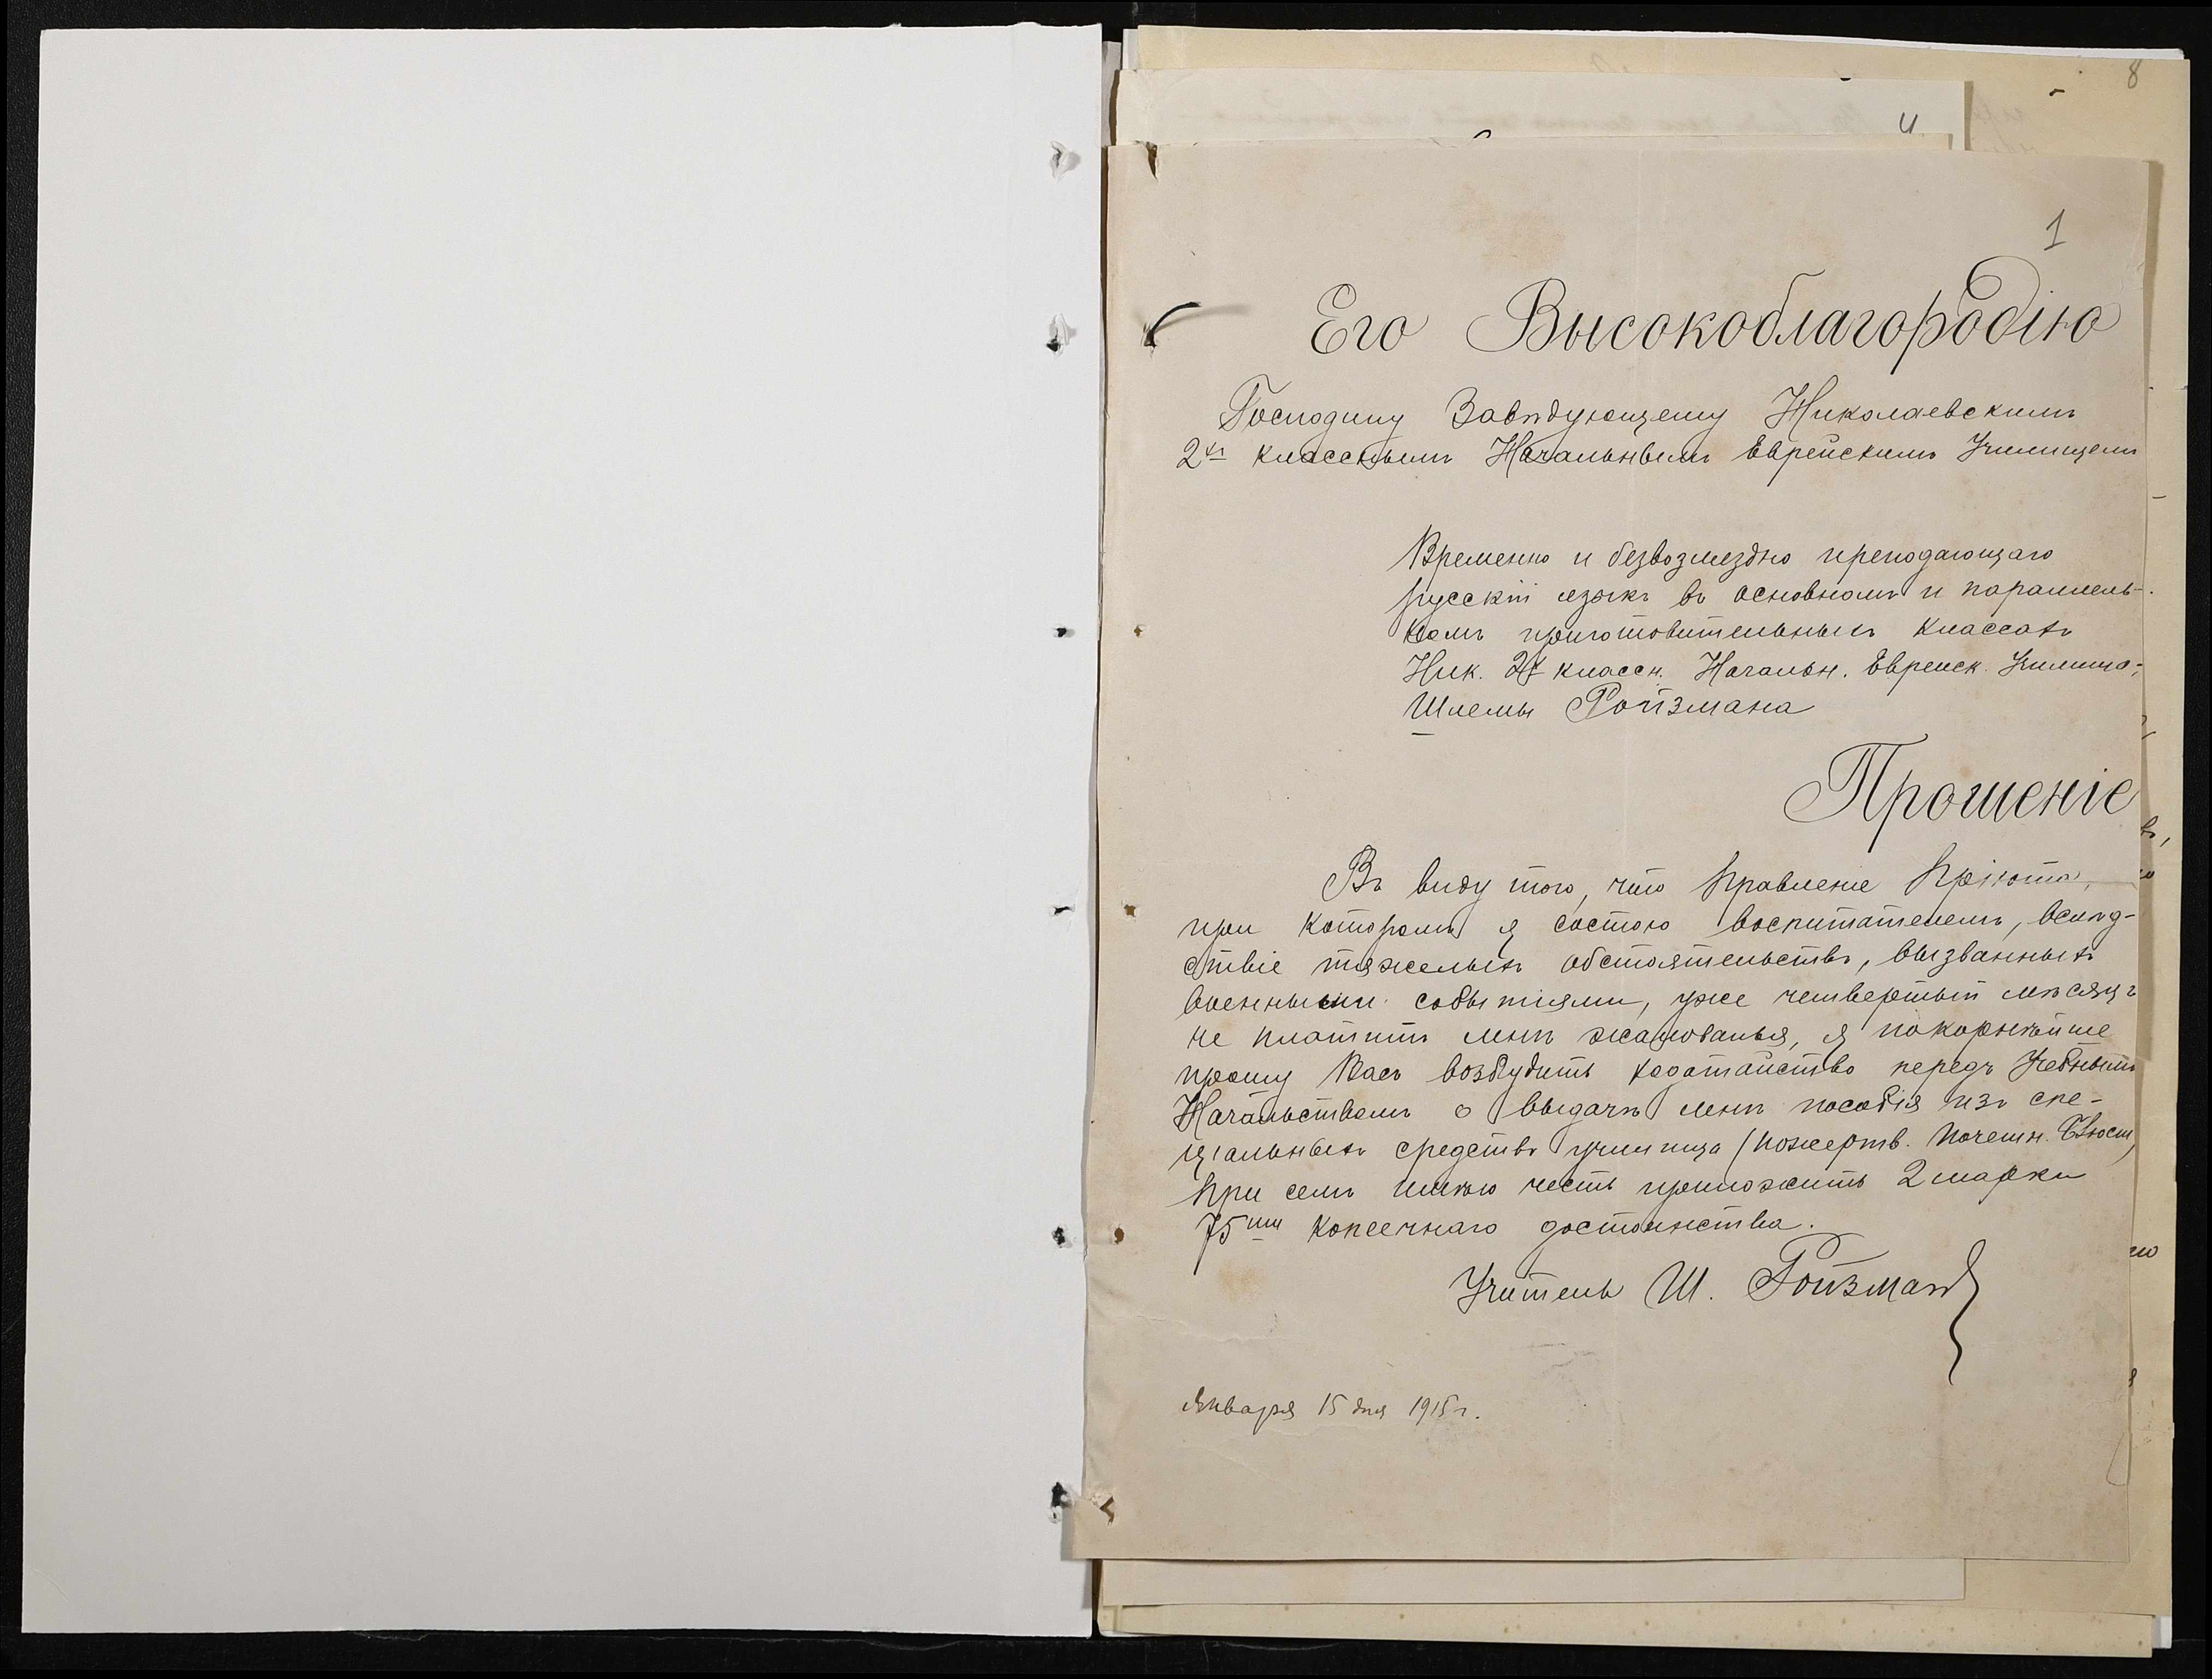 8
4
1
Его Высокоблагородію
Господину Завѣдующему Николаевскимъ
2хъ класснымъ Начальнымъ Еврейскимъ Училищемъ
Временно и безвозмездно преподающаго
русскій языкъ въ основномъ и параллель-
номъ приготовительныхъ классахъ
Ник. 2х классн. Начальн. Еврейск. Училища,
Шлемы Ройзмана
Прошеніе
Въ виду того, что Правленіе Пріюта,
при которомъ я состою воспитателемъ, вслѣд-
ствіе тяжелыхъ обстоятельствъ, вызванныхъ
военными событіями, уже четвертый мѣсяцъ
не платитъ мнѣ жалованья, я покорнѣйше
прошу Васъ возбудить ходатайство передъ Учебнымъ
Начальствомъ о выдачѣ мнѣ пособія изъ спе-
ціальныхъ средствъ училища (пожертв. Почетн. Блюст,
При семъ имѣю честь приложить 2 марки
75ти копеечнаго достоинства.
Учитель Ш. Ройзман
Января 15 дня 1915 г.